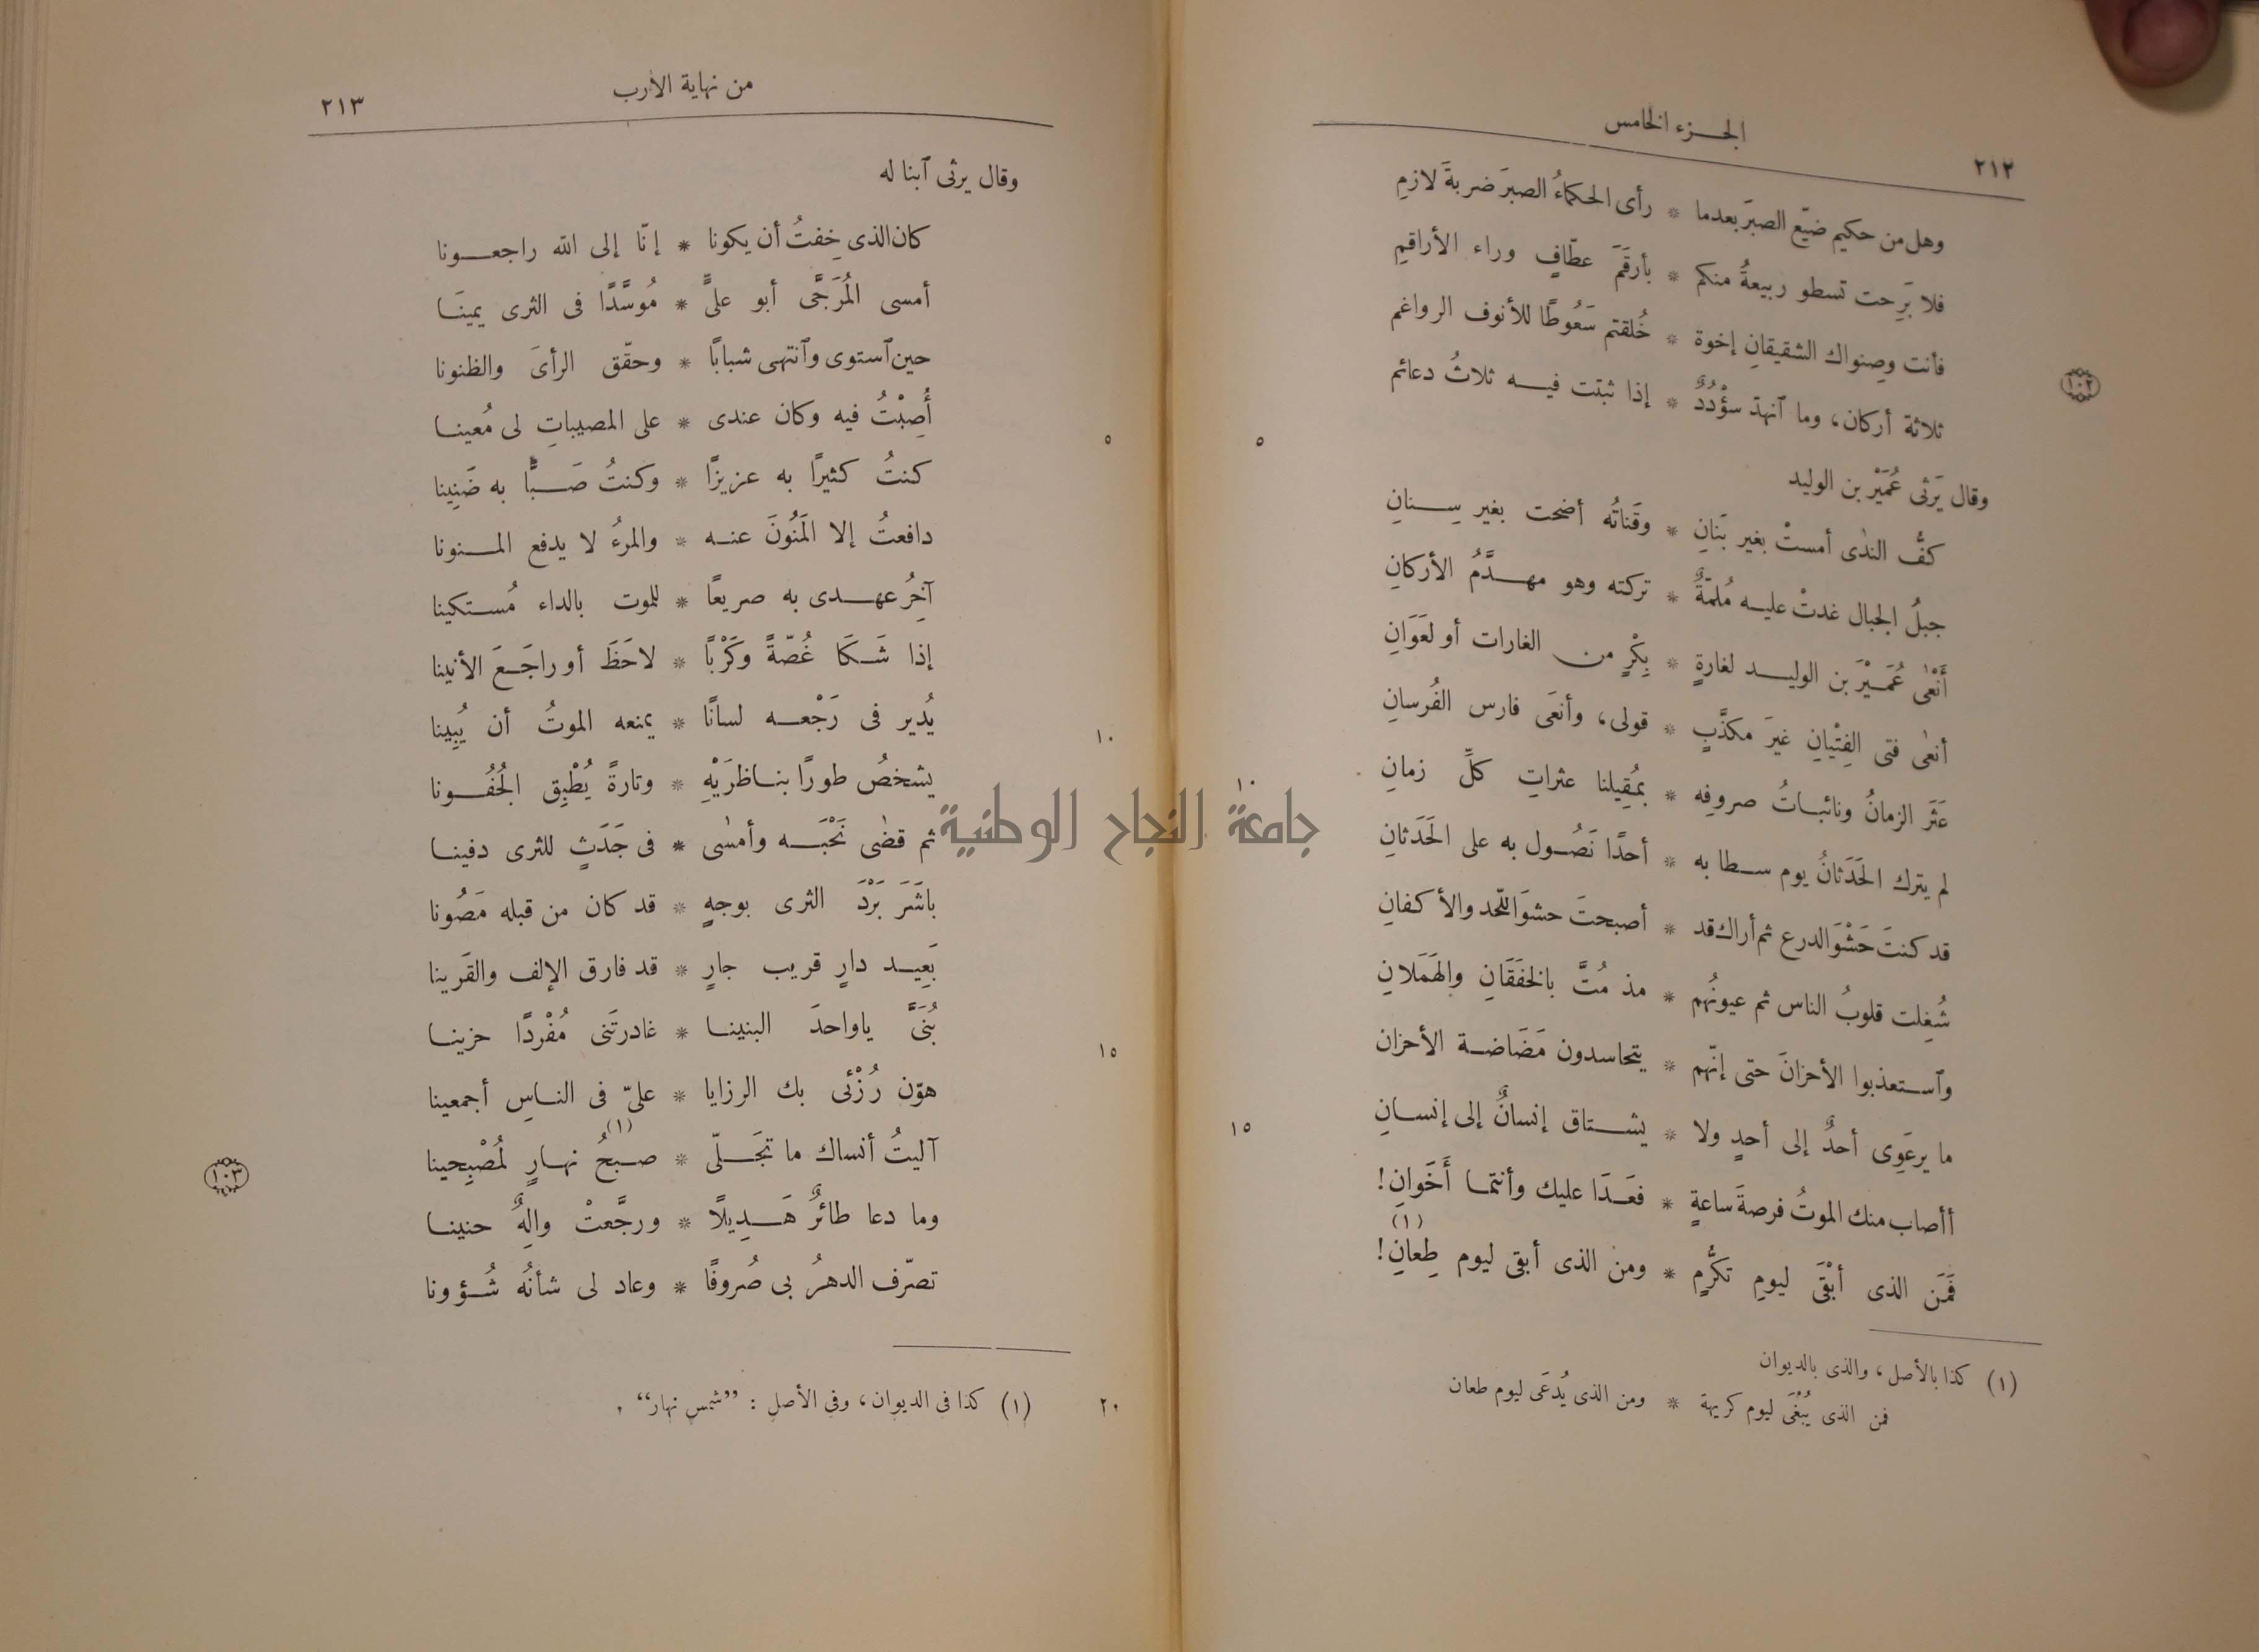 ٢١٢
الجزء الخامس
وهل من حكيم ضيّع الصبرَ بعدما * رأى الحكماءُ الصبرَ ضربةَ لازمِ
فلا بَرِحت تسطو ربيعةُ منكم * بأرقَمَ عطّافٍ وراء الأراقمِ
فأنت وصِنواك الشقيقانِ إخوة * خُلقتم سَعُوطًا للأنوف الرواغم
ثلاثة أركان، وما ٱنهدّ سؤْدُدٌ * إذا ثبتت فيه ثلاثُ دعائم
١٠٢
٥
وقال يَرثى عُمَيْر بن الوليد
كفُّ الندٰى أمستْ بغير بَنانِ * وقَناتُه أضحت بغير سِنانِ
جبلُ الجبال غدتْ عليه مُلمّةٌ * تركته وهو مهدَّمُ الأركانِ
أَنْعٰى عُمَيْرَ بن الوليد لغارةٍ * بِكْرٍ من الغارات أو لعَوَانِ
أنعٰى فتى الفِتْيانِ غيرَ مكذَّبٍ * قولى، وأنعَى فارس الفُرسانِ
عَثَر الزمانُ ونائباتُ صروفِه * بمُقِيلنا عثراتِ كلِّ زمانِ
١٠
لم يترك الحَدَثانُ يوم سطا به * أحدًا نَصُول به على الحَدَثانِ
قد كنتَ حَشْوَ الدرع ثم أراك قد * أصبحتَ حشوَ اللّحد والأكفانِ
شُغِلت قلوبُ الناس ثم عيونُهم * مذ مُتَّ بالخفَقَانِ والهَمَلانِ
وٱستعذبوا الأحزانَ حتى إنّهم * يتحاسدون مَضَاضة الأحزان
ما يرعَوِى أحدٌ إلى أحدٍ ولا * يشتاق إنسانٌ إلى إنسانِ
١٥
أأصاب منك الموتُ فرصةَ ساعةٍ * فعَدَا عليك وأنتما أَخَوانِ!
فَمَن الذى أبْقَى ليومِ تكرُّمٍ * ومن الذى أبقى ليوم طِعانِ! (١)
(١) كذا بالأصل، والذى بالديوان
فمن الذى يُبْغَى ليوم كريهة * ومن الذى يُدعَى ليوم طعان
من نهاية الأرب
٢١٣
وقال يرثى ٱبنا له
كان الذى خِفتُ أن يكونا * إنّا إلى الله راجعونا
أمسى المُرَجَّى أبو علىٍّ * مُوسَّدًا فى الثرى يمينَا
حين ٱستوى وٱنتهى شبابًا * وحقّق الرأىَ والظنونا
أُصِبْتُ فيه وكان عندى * على المصيباتِ لى مُعينا
٥
كنتُ كثيرًا به عزيزًا * وكنتُ صَبًّا به ضَنِينا
دافعتُ إلا المَنُونَ عنه * والمرءُ لا يدفع المنونا
آخِرُ عهدى به صريعًا * للموت بالداء مُستكينا
إذا شَكَا غُصّةً وكَرْبًا * لاحَظَ أو راجَعَ الأنينا
يُدير فى رَجْعه لسانًا * يمنعه الموتُ أن يُبِينا
١٠
يشخصُ طورًا بناظرَيْهِ * وتارةً يُطْبِق الجُفُونا
ثم قضٰى نَحْبَه وأمسٰى * فى جَدَثٍ للثرى دفينا
باشَرَ بَرْدَ الثرى بوجهٍ * قد كان من قبله مَصُونا
بَعِيد دارٍ قريب جارٍ * قد فارق الإلف والقَرينا
بُنَىَّ ياواحدَ البنينا * غادرتَنى مُفْردًا حزينا
١٥
هوّن رُزْئى بك الرزايا * علىّ فى الناسِ أجمعينا
آليتُ أنساك ما تجَلّى * صبحُ (١) نهارٍ لمُصْبِحِينا
١٠٣
وما دعا طائرٌ هَدِيلًا * ورجَّعتْ والِهٌ حنينا
تصرّف الدهرُ بى صُروفًا * وعاد لى شأنُه شُؤونا
(١) كذا فى الديوان، وفى الأصل : ”شمس نهار“ .
٢٠
جامعة النجاح الوطنية